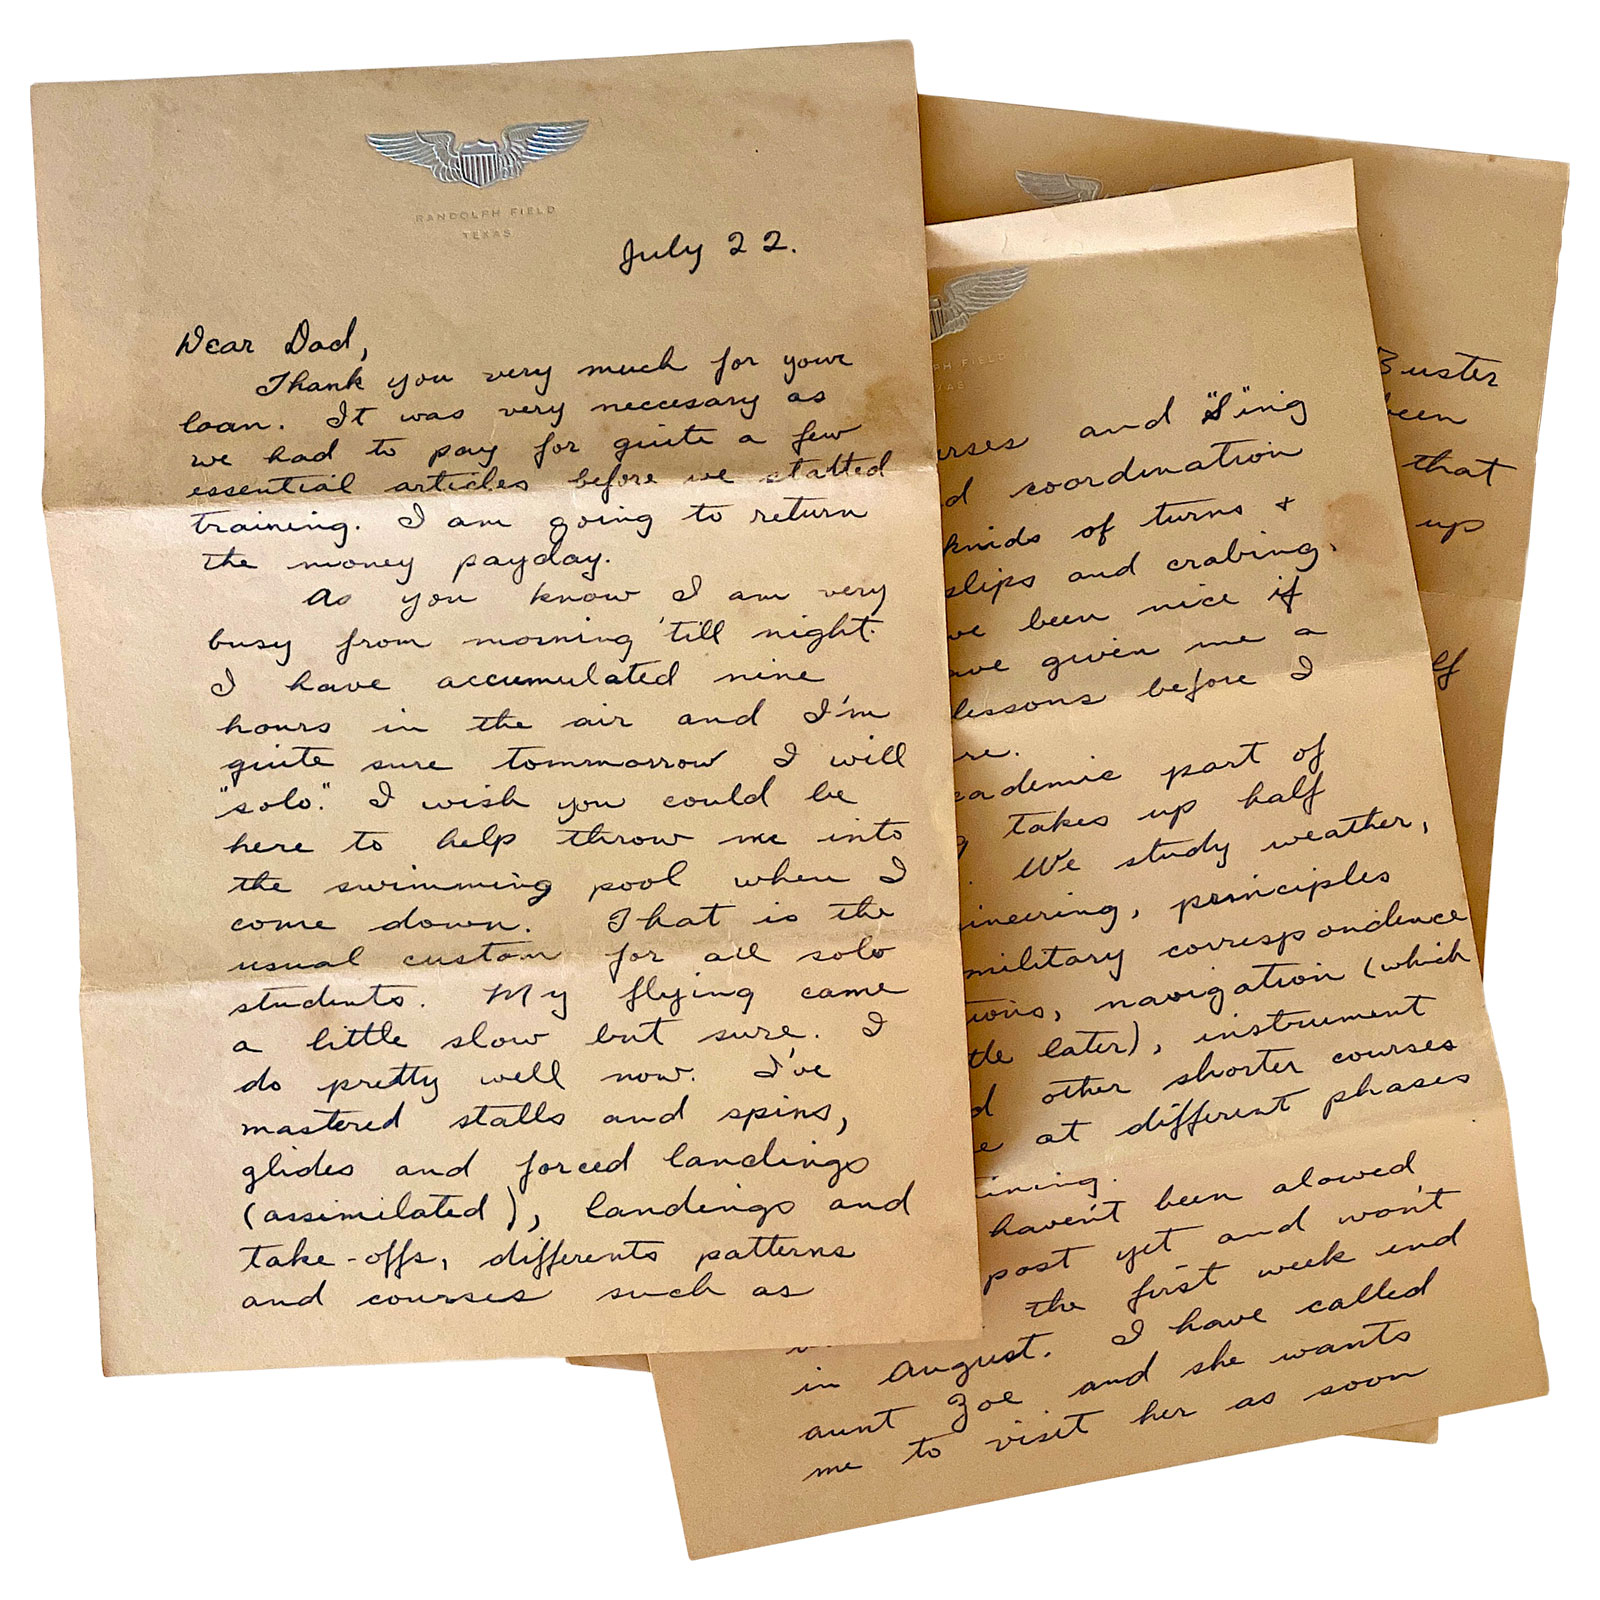 RANDOLPH FIELD
TEXAS
July 22.
Dear Dad,
Thank you very much for your
loan. It was very neccesary as
we had to pay for quite a few
essential articles before we statted
training. I am going to return
the money payday.
As you know I am very
busy from morning 'till night.
I have accumulated nine
hours in the air and I'm
quite sure tommorrow I will
"solo." I wish you could be
here to help throw me into
the swimming pool when I
come down. That is the
usual custom for all solo
students. My flying came
a little slow but sure. I
do pretty well now. I've
mastered stalls and spins,
glides and forced landings
(assimilated), landings and
take-offs, differents patterns
and courses such as
PH FIELD
XAS
urses and "S"ing
d coordination
knids of turns +
slips and crabing.
ve been nice if
ave given me a
lessons before I
re.
cademic part of
g takes up half
. We study weather,
ineering, principles
military correspondence
tions, navigation (which
tle later), instrument
d other shorter courses
e at different phases
ining.
haven't been alowed
post yet and won't
the first week end
in August. I have called
aunt Zoe and she wants
me to visit her as soon
Buster
been
that
up
lf